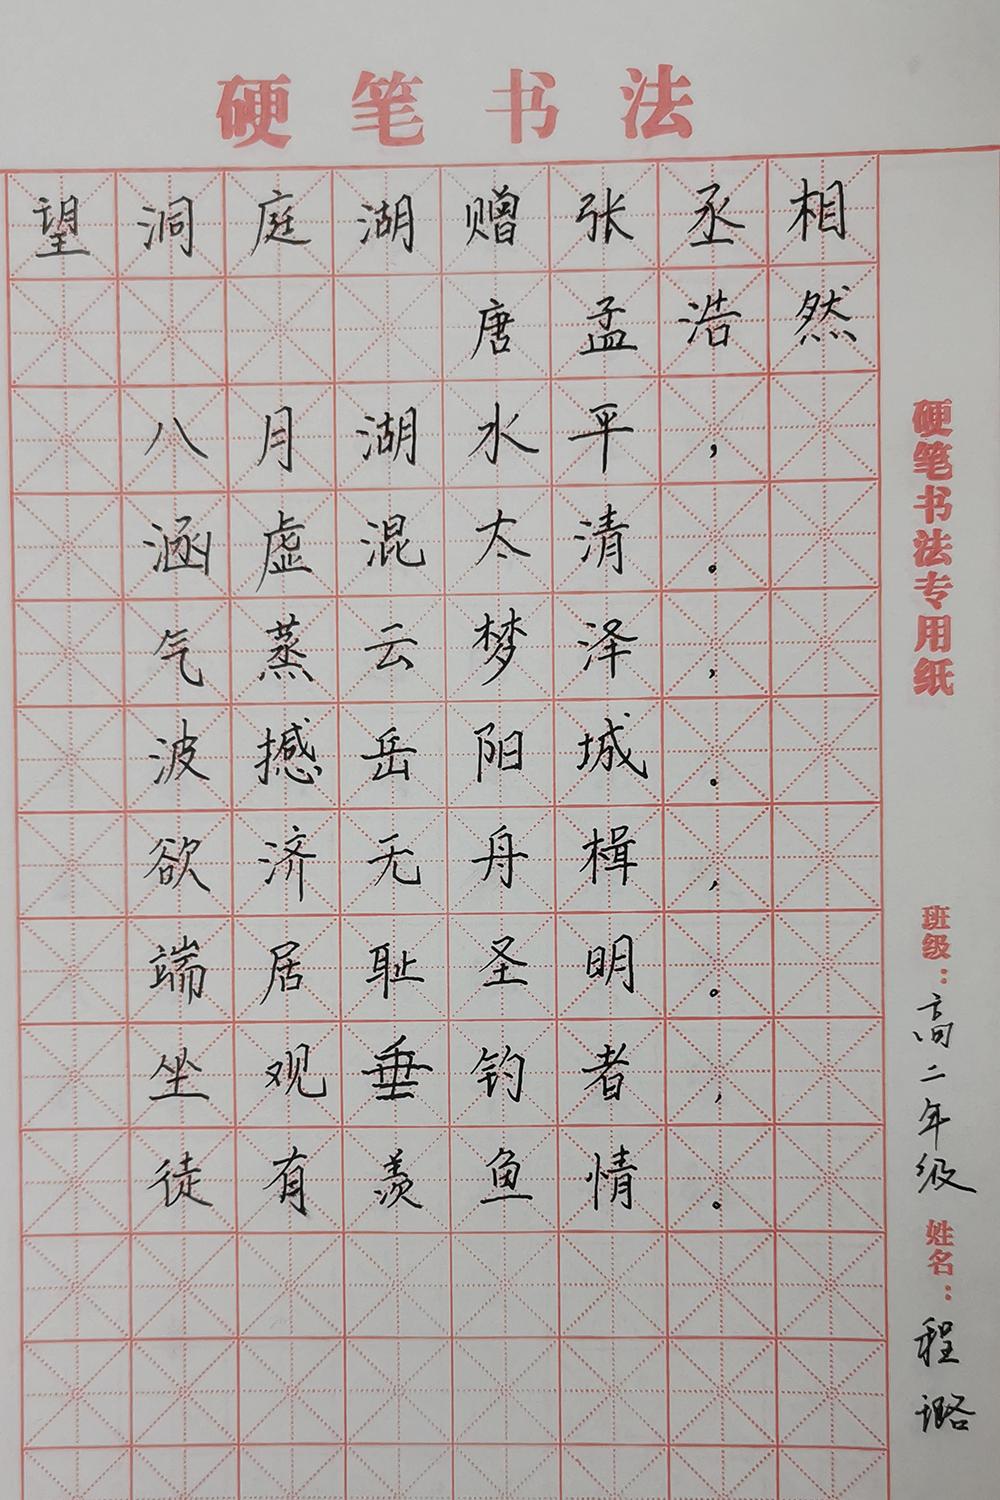 硬笔书法
望洞庭湖赠张丞相
唐孟浩然
八月湖水平，
涵虚混太清。
气蒸云梦泽，
波撼岳阳城。
欲济无舟楫，
端居耻圣明。
坐观垂钓者，
徒有羡鱼情。
硬笔书法专用纸
班级：高二年级
姓名：程